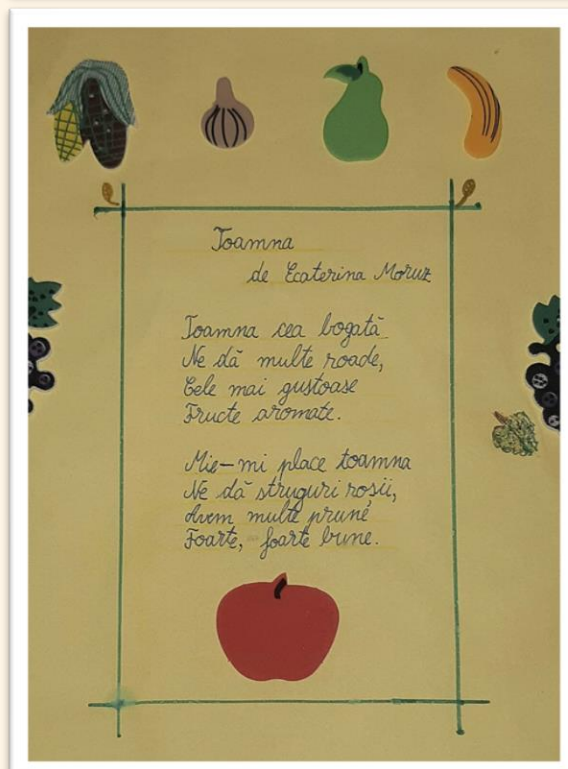 Toamna
de Ecaterina Moruz
Toamna cea bogată
Ne dă multe roade,
Cele mai gustoase
Fructe aromate.
Mie-mi place toamna
Ne dă struguri roșii,
Avem multe prune
Foarte, foarte bune.